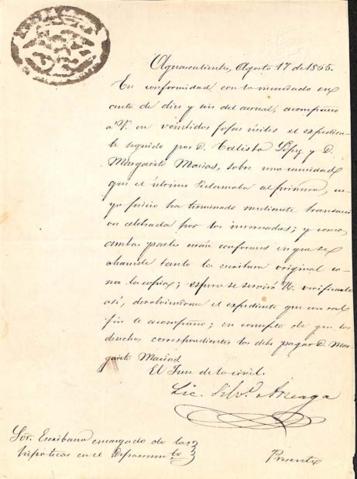 Aguascalientes, Agosto 17 de 1855.
En conformidad con lo mandado en
auto de diez y seis del actual, acompaño
a V. en veintidos fojas útiles el espedien
te seguido por D. Calisto Lopez y D.
Margarito Macias, sobre una cantidad
que el último reclamaba al primero, cu
yo juicio ha terminado mediante transacci
on celebrada por los interesados; y como
ambas partes están conformes en que se
chancele tanto la escritura original co
mo la copia; espero se servirá V. verificarlo
así, devolviendome el espediente que con tal
fin le acompaño; en concepto de que los
derechos correspondientes los debe pagar D. Mar
garito Macias.
El Juez de lo civil.
Lic. Arteaga
Sor. Escribano encargado de las
hipotecas en el Departamento
Presente